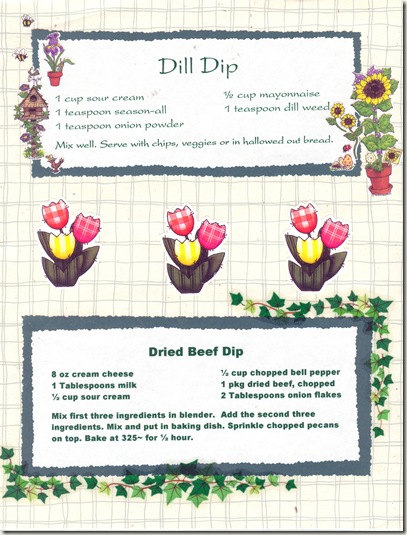 Dill Dip
1 cup sour cream
1 teaspoon season-all
1 teaspoon onion powder
½ cup mayonnaise
1 teaspoon dill weed
Mix well. Serve with chips, veggies or in hallowed out bread.
Dried Beef Dip
8 oz cream cheese
1 Tablespoons milk
½ cup sour cream
½ cup chopped bell pepper
1 pkg dried beef, chopped
2 Tablespoons onion flakes
Mix first three ingredients in blender. Add the second three
ingredients. Mix and put in baking dish. Sprinkle chopped pecans
on top. Bake at 325~ for ½ hour.